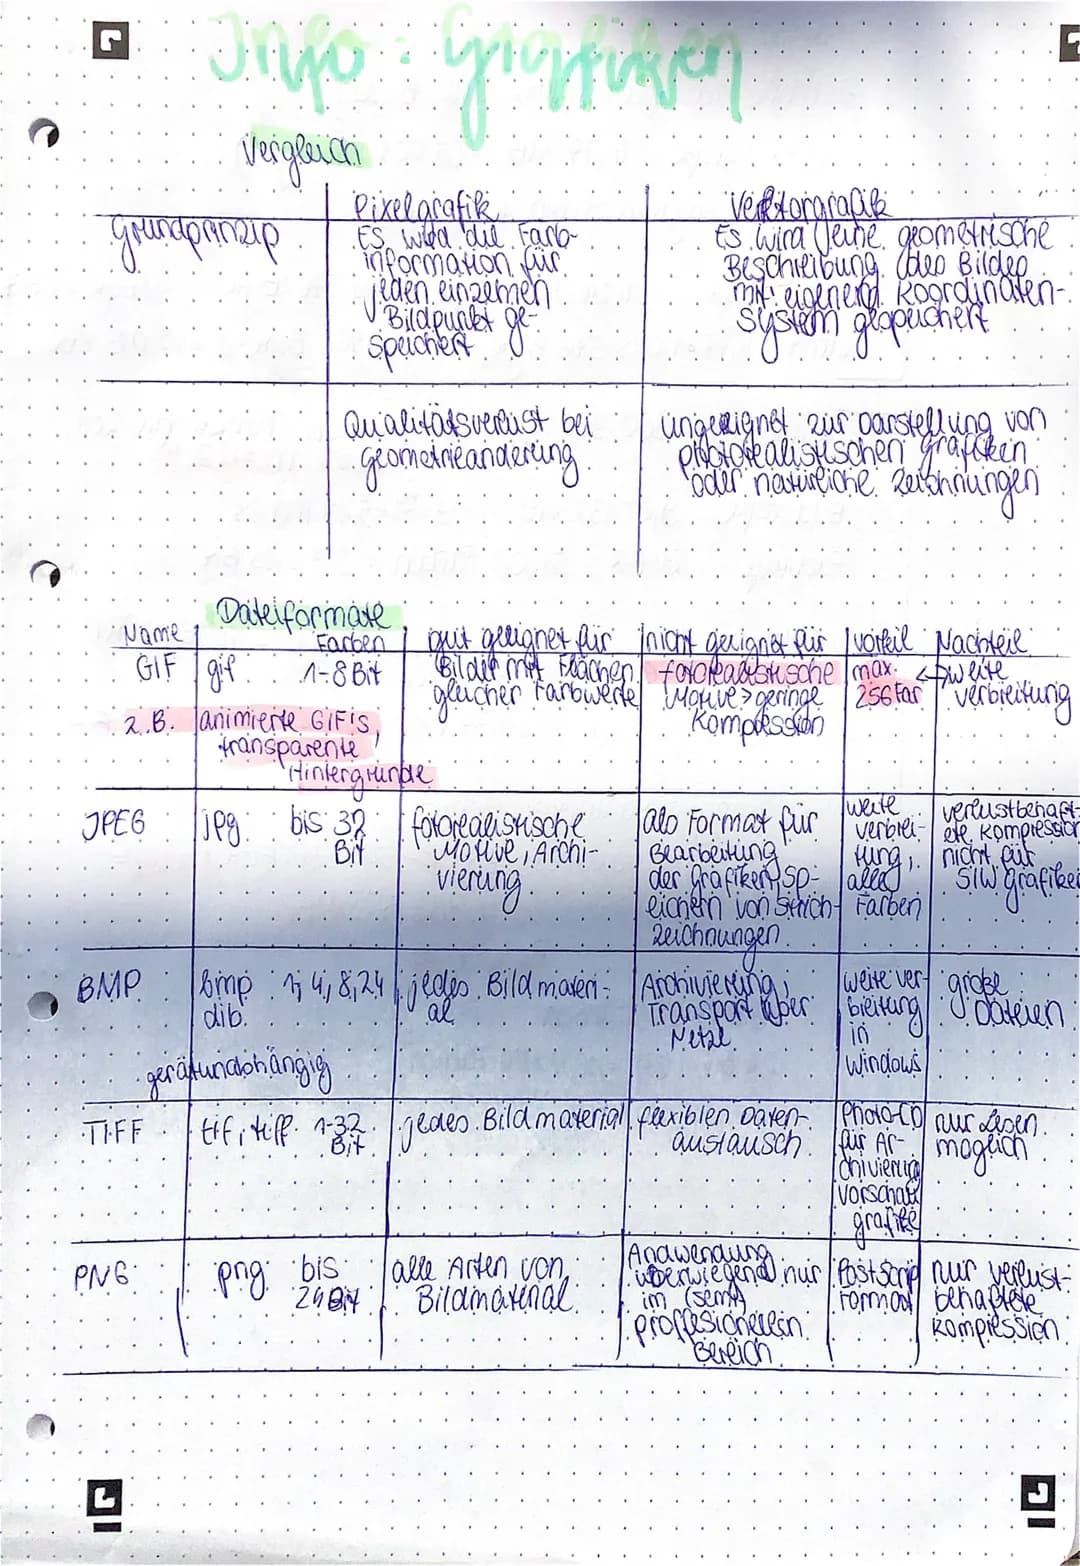 Info: Grafiken
Vergleich
Pixelgrafik
Vektorgrafik
Grundprinzip
Es wird die Farb-
information für
jeden einzelnen
Bildpunkt ge-
speichert
Es wird eine geometrische
Beschreibung des Bildes
mit eigenem Koordinaten-
system gespeichert
Qualitätsverlust bei
geometrieänderung
ungeeignet zur Darstellung von
photorealistischen grafiken
oder natürliche Zeichnungen
Dateiformate
Name
Farben
gut geeignet für
nicht geeignet für
vorteil
Nachteil
GIF
gif
1-8 Bit
Bilder mit Flächen
gleicher Farbwerte
fotorealistische
Motive > geringe
Kompression
max.
256 Far
<-> weite
verbreitung
z.B. animierte GIF's,
transparente
Hintergründe
JPEG
jpg
bis 32
Bit
fotorealistische
Motive, Archi-
vierung
als Format für
Bearbeitung
der grafiken, Sp-
eichern von Strich-
zeichnungen
weite
verbrei-
tung,
alle
Farben
verlustbehaft-
ete Kompression
nicht für
S/W grafiken
BMP
bmp
dib
1, 4, 8, 24
jedes Bildmateri-
al
Archivierung,
Transport über
Netze
weite ver-
breitung
in
Windows
große
Dateien
gerätunabhängig
TIFF
tif, tiff
1-32
Bit
jedes Bildmaterial
flexiblen Daten-
austausch
Photo-CD
für Ar-
chivierung
vorschau
grafike
nur lesen
möglich
PNG
png
bis
24 Bit
alle Arten von
Bildmaterial
Andwendung
überwiegend nur
im (semi)
proffesionellen
Bereich
PostScrip
Format
nur verlust-
behaftete
Kompression